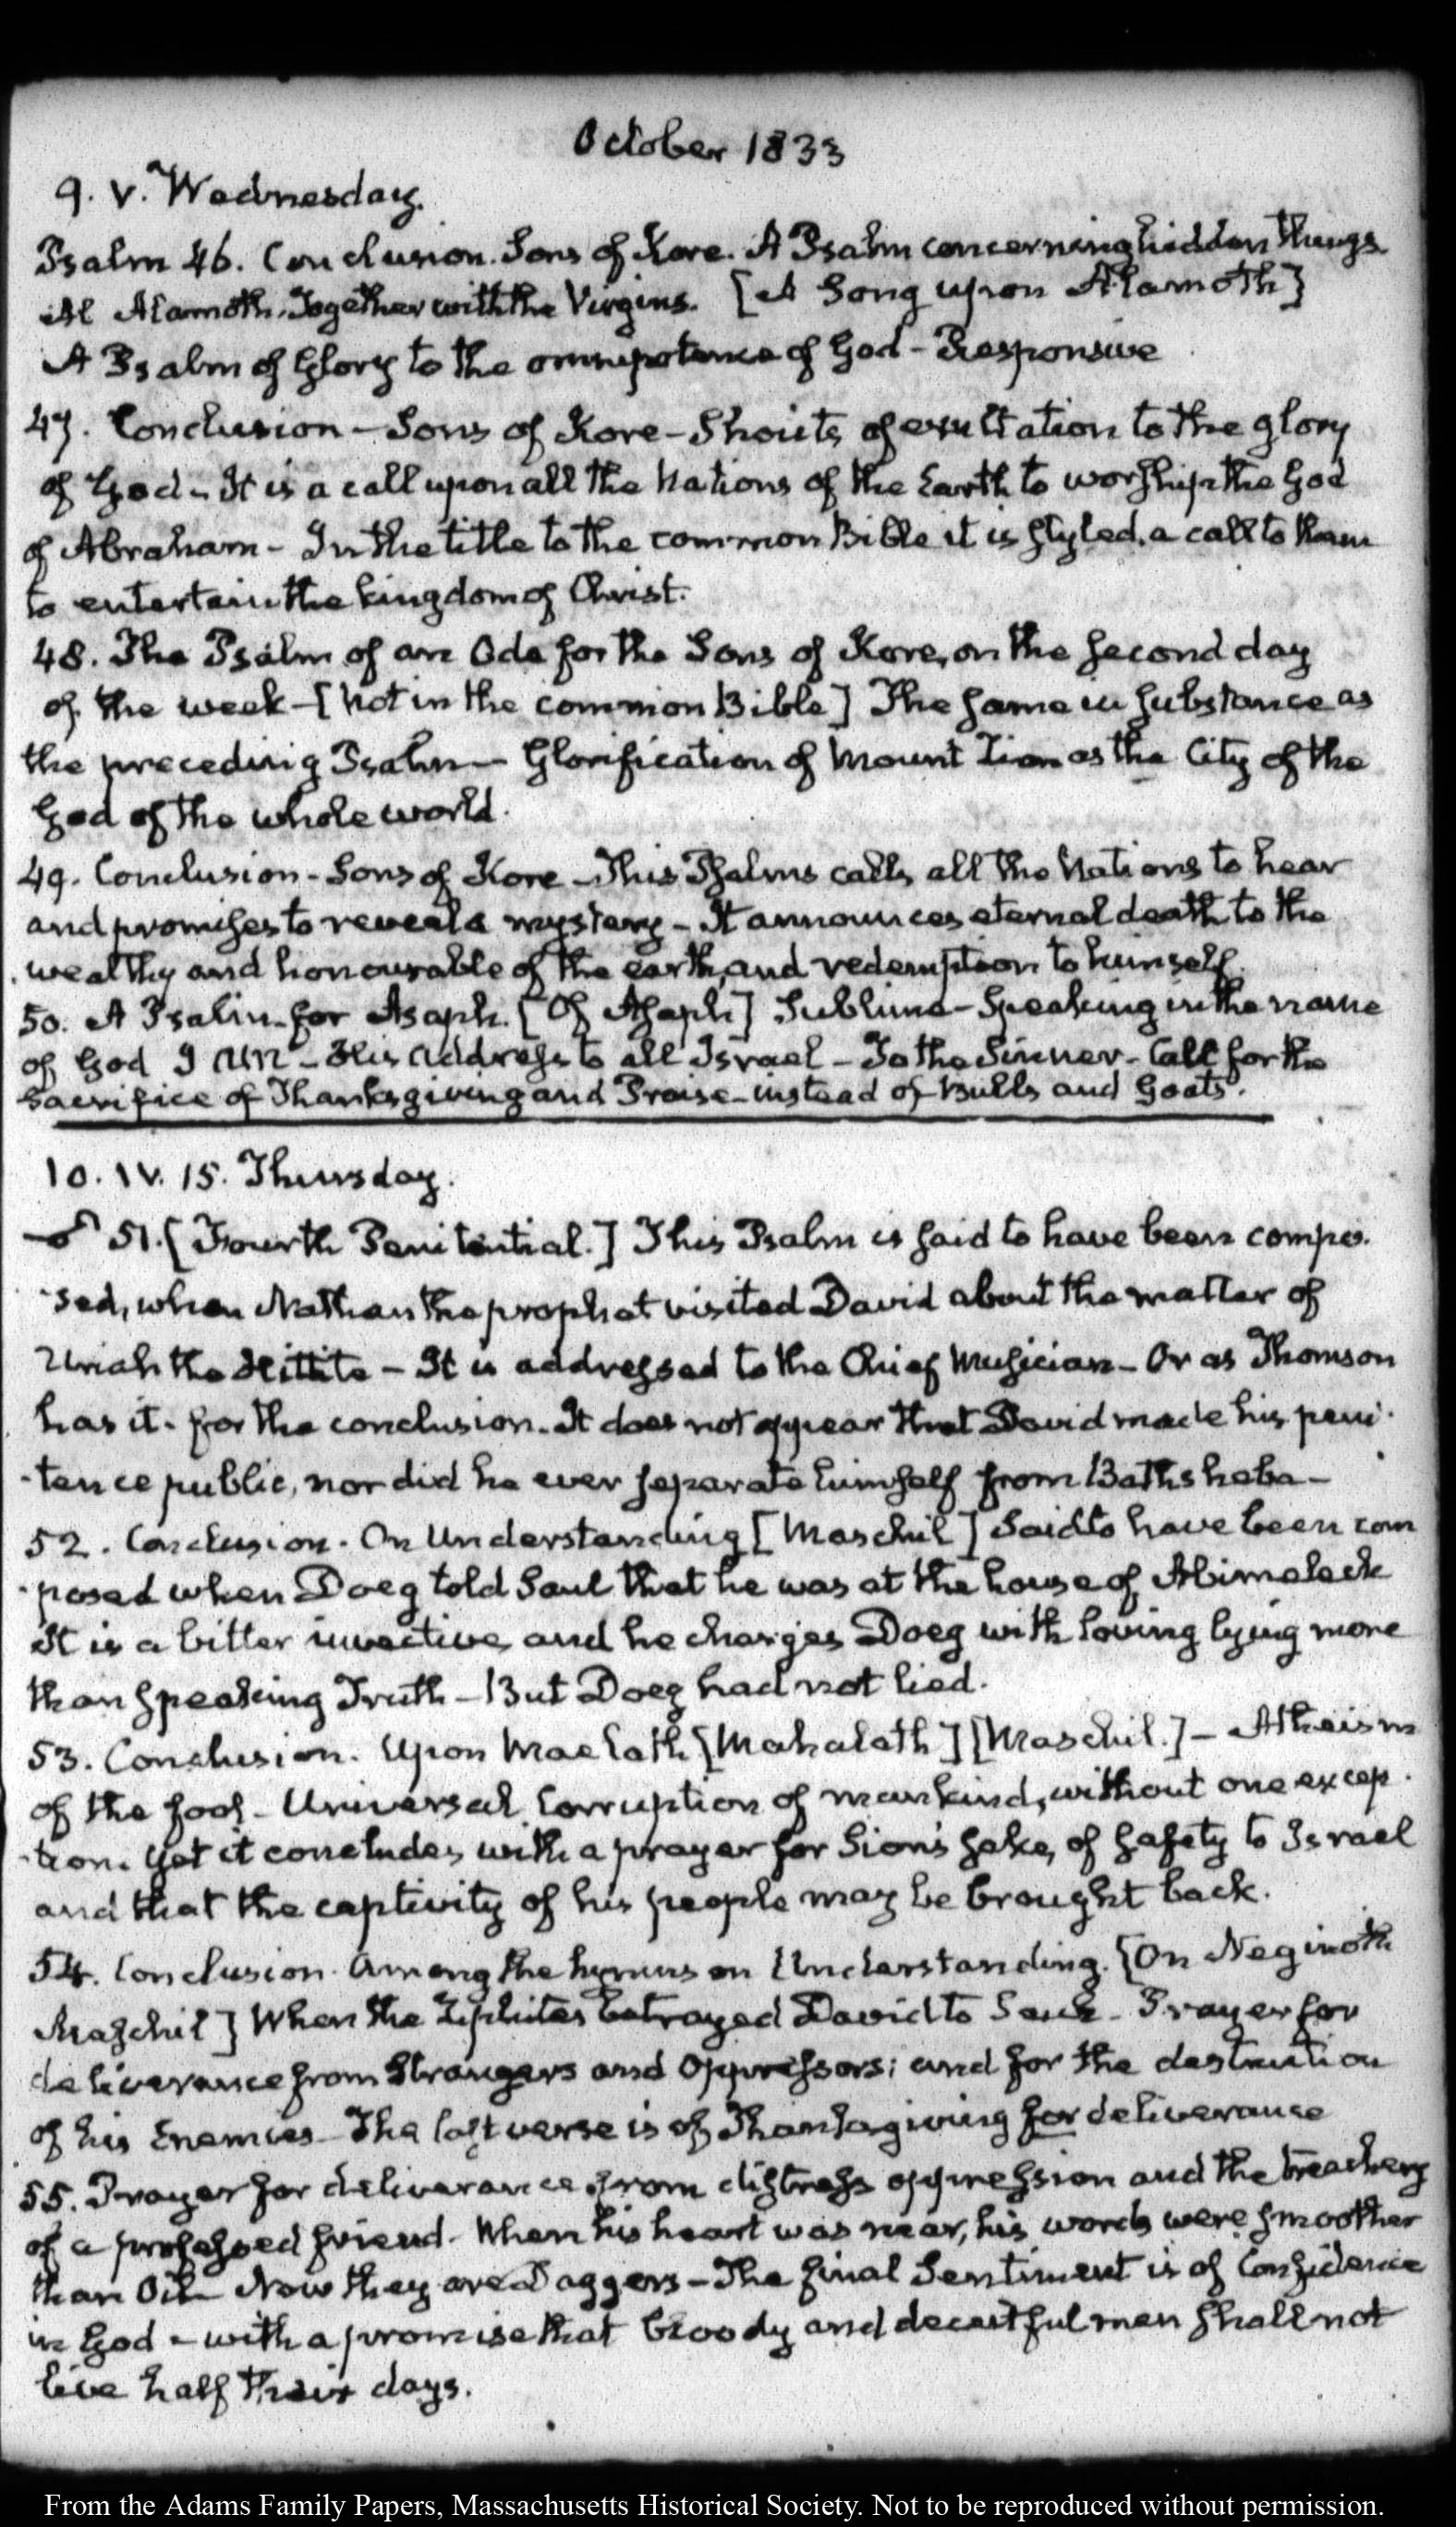 October 1833
9. V. Wednesday.
Psalm 46. Conclusion. Sons of Kore. A Psalm concerning hidden things.
Al Alamoth. Together with the Virgins. [A Song upon Alamoth]
A Psalm of Glory to the omnipotence of God - Responsive
47. Conclusion - Sons of Kore - Shouts of exultation to the glory
of God - It is a call upon all the Nations of the Earth to worship the God
of Abraham - In the title to the common Bible it is styled, a call to them
to entertain the kingdom of Christ.
48. The Psalm of an Ode for the Sons of Kore, on the second day
of the week - [Not in the common Bible] The same in substance as
the preceding Psalm - Glorification of Mount Zion as the City of the
God of the whole world.
49. Conclusion - Sons of Kore - This Psalms calls all the Nations to hear
and promises to reveal a mystery - It announces eternal death to the
wealthy and honourable of the earth, and redemption to himself.
50. A Psalm for Asaph. [Of Asaph] Sublime - Speaking in the name
of God I am - His Address to all Israel - To the Sinner - Call for the
Sacrifice of Thanksgiving and Praise - instead of Bulls and Goats.
10. IV. 15. Thursday.
51. [Fourth Penitential.] This Psalm is said to have been compo-
-sed, when Nathan the prophet visited David about the matter of
Uriah the Hittite - It is addressed to the Chief Musician - Or as Thomson
has it - for the conclusion. It does not appear that David made his peni-
-tence public, nor did he ever separate himself from Bathsheba -
52. Conclusion. On Understanding [Maschil] Said to have been com
-posed when Doeg told Saul that he was at the house of Abimeleck
It is a bitter invective, and he charges Doeg with loving lying more
than speaking Truth - But Doeg had not lied.
53. Conclusion. Upon Maelath [Mahalath] [Maschil.] - Atheism
of the fool - Universal Corruption of mankind, without one excep-
-tion. Yet it concludes with a prayer for Sion's sake, of safety to Israel
and that the captivity of his people may be brought back.
54. Conclusion. Among the hymns on Understanding. [On Neginoth
Maschil] When the Ziphites betrayed David to Saul - Prayer for
deliverance from Strangers and Oppressors; and for the destruction
of his Enemies - The last verse is of Thanksgiving for deliverance
55. Prayer for deliverance from distress oppression and the treachery
of a professed friend. When his heart was near, his words were smoother
than Oil - Now they are Daggers - The final Sentiment is of Confidence
in God - with a promise that bloody and deceitful men shall not
live half their days.
From the Adams Family Papers, Massachusetts Historical Society. Not to be reproduced without permission.